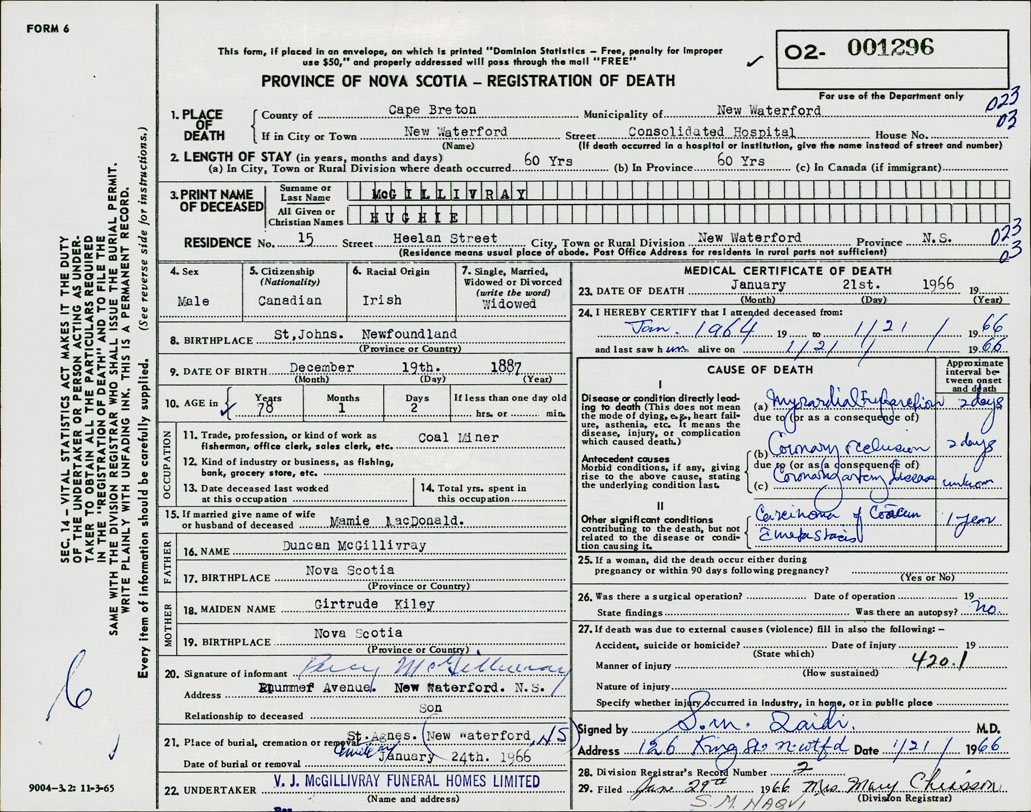 FORM 6
This form, if placed in an envelope, on which is printed "Dominion Statistics – Free, penalty for improper
use $50," and properly addressed will pass through the mail "FREE"
PROVINCE OF NOVA SCOTIA – REGISTRATION OF DEATH
O2- 001296
For use of the Department only
023
03
1. PLACE OF DEATH
County of Cape Breton Municipality of New Waterford
If in City or Town New Waterford Street Consolidated Hospital House No.
(Name) (If death occurred in a hospital or institution, give the name instead of street and number)
2. LENGTH OF STAY (in years, months and days)
(a) In City, Town or Rural Division where death occurred 60 Yrs (b) In Province 60 Yrs (c) In Canada (if immigrant)
3. PRINT NAME OF DECEASED
Surname or Last Name McGILLIVRAY
All Given or Christian Names HUGHIE
RESIDENCE No. 15 Street Heelan Street City, Town or Rural Division New Waterford Province N.S.
(Residence means usual place of abode. Post Office Address for residents in rural parts not sufficient)
023
03
4. Sex
Male
5. Citizenship
(Nationality)
Canadian
6. Racial Origin
Irish
7. Single, Married, Widowed or Divorced
(write the word)
Widowed
8. BIRTHPLACE St,Johns. Newfoundland
(Province or Country)
9. DATE OF BIRTH December 19th. 1887
(Month) (Day) (Year)
10. AGE in Years 78 Months 1 Days 2 If less than one day old hrs. or min.
OCCUPATION
11. Trade, profession, or kind of work as fisherman, office clerk, sales clerk, etc. Coal Miner
12. Kind of industry or business, as fishing, bank, grocery store, etc.
13. Date deceased last worked at this occupation
14. Total yrs. spent in this occupation
15. If married give name of wife or husband of deceased Mamie MacDonald.
FATHER
16. NAME Duncan McGillivray
17. BIRTHPLACE Nova Scotia
(Province or Country)
MOTHER
18. MAIDEN NAME Girtrude Kiley
19. BIRTHPLACE Nova Scotia
(Province or Country)
20. Signature of informant Percy McGillivray
Address Plummer Avenue. New Waterford. N.S.
Relationship to deceased Son
21. Place of burial, cremation or removal St.Agnes. Cemetery (New Waterford, NS)
Date of burial or removal January 24th. 1966
22. UNDERTAKER V. J. McGILLIVRAY FUNERAL HOMES LIMITED
(Name and address)
MEDICAL CERTIFICATE OF DEATH
23. DATE OF DEATH January 21st. 1966 19
(Month) (Day) (Year)
24. I HEREBY CERTIFY that I attended deceased from:
Jan. 1964 19 to 1/21/ 1966
and last saw him alive on 1/21/ 1966
CAUSE OF DEATH
Approximate interval between onset and death
I
Disease or condition directly leading to death (This does not mean the mode of dying, e.g., heart failure, asthenia, etc. It means the disease, injury, or complication which caused death.)
(a) Myocardial Infarction 2 days
due to (or as a consequence of)
Antecedent causes
Morbid conditions, if any, giving rise to the above cause, stating the underlying condition last.
(b) Coronary occlusion 2 days
due to (or as a consequence of)
(c) Coronary artery disease unknown
II
Other significant conditions contributing to the death, but not related to the disease or condition causing it.
Carcinoma of 1 year
metastasis
25. If a woman, did the death occur either during pregnancy or within 90 days following pregnancy?
(Yes or No)
26. Was there a surgical operation? Date of operation 19
State findings Was there an autopsy? no.
27. If death was due to external causes (violence) fill in also the following: –
Accident, suicide or homicide? Date of injury 19
(State which)
Manner of injury 420.1
(How sustained)
Nature of injury
Specify whether injury occurred in industry, in home, or in public place
Signed by S.M. Zaidi M.D.
Address 126 King St. Date 1/21/ 1966
28. Division Registrar's Record Number 2
29. Filed Jan. 29th 1966 Mrs. Mary Chiasson
(Division Registrar)
S.M. NAQVI
SEC. 14 – VITAL STATISTICS ACT MAKES IT THE DUTY
OF THE UNDERTAKER OR PERSON ACTING AS UNDER-
TAKER TO OBTAIN ALL THE PARTICULARS REQUIRED
IN THE "REGISTRATION OF DEATH" AND TO FILE THE
SAME WITH THE DIVISION REGISTRAR WHO SHALL ISSUE THE BURIAL PERMIT.
WRITE PLAINLY WITH UNFADING INK. THIS IS A PERMANENT RECORD.
Every item of information should be carefully supplied. (See reverse side for instructions.)
6
9004-3.2: 11-3-65